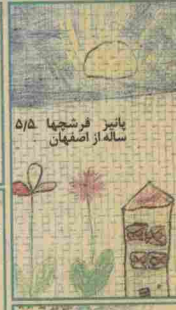 پانیز فرشچها ۵/۵
ساله از اصفهان